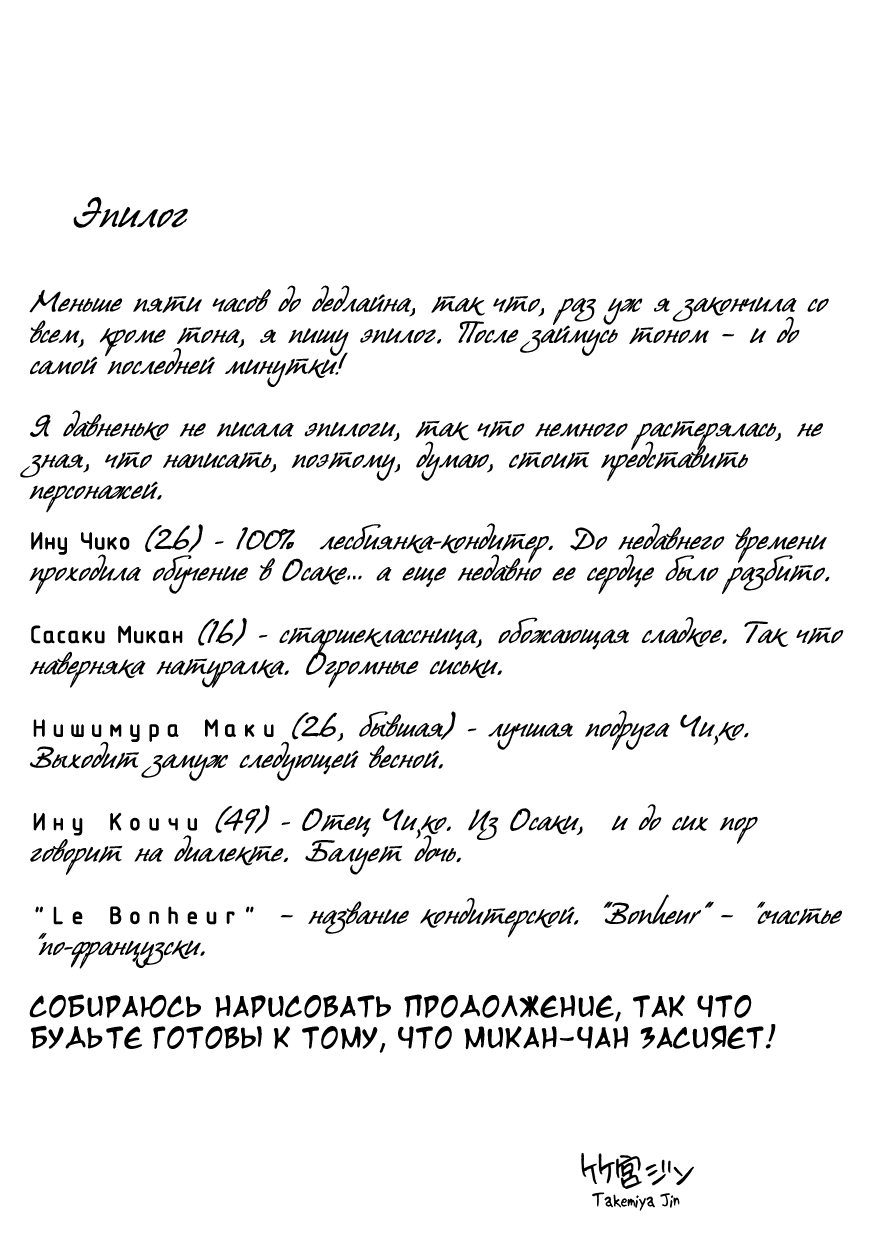 Эпилог
Меньше пяти часов до дедлайна, так что, раз уж я закончила со
всем, кроме тона, я пишу эпилог. После займусь тоном – и до
самой последней минутки!
Я давненько не писала эпилоги, так что немного растерялась, не
зная, что написать, поэтому, думаю, стоит представить
персонажей.
Ину Чико (26) - 100% лесбиянка-кондитер. До недавнего времени
проходила обучение в Осаке... а еще недавно ее сердце было разбито.
Сасаки Микан (16) - старшеклассница, обожающая сладкое. Так что
наверняка натуралка. Огромные сиськи.
Нишимура Маки (26, бывшая) - лучшая подруга Чико.
Выходит замуж следующей весной.
Ину Коичи (49) - Отец Чико. Из Осаки, и до сих пор
говорит на диалекте. Балует дочь.
"Le Bonheur" – название кондитерской. "Bonheur" – "счастье
"по-французски.
СОБИРАЮСЬ НАРИСОВАТЬ ПРОДОЛЖЕНИЕ, ТАК ЧТО
БУДЬТЕ ГОТОВЫ К ТОМУ, ЧТО МИКАН-ЧАН ЗАСИЯЕТ!
竹宮ジン
Takemiya Jin